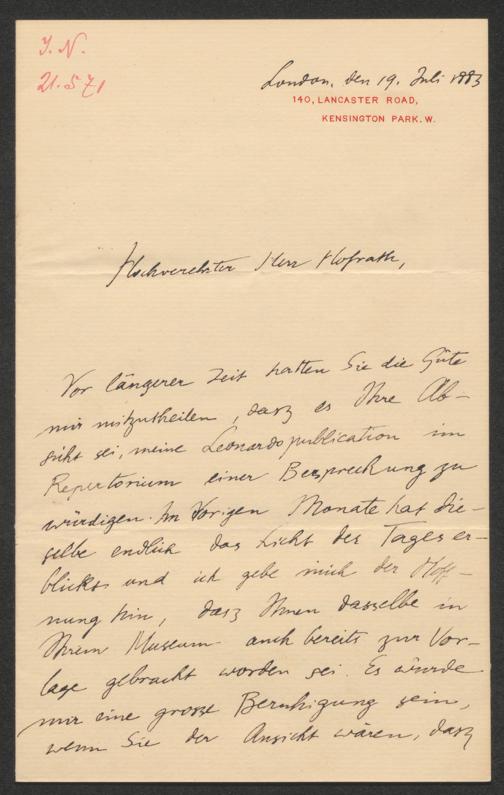 J. N.
21.571
London, den 19. Juli 1883
140, LANCASTER ROAD,
KENSINGTON PARK. W.
Hochverehrter Herr Hofrath,
Vor längerer Zeit hatten Sie die Güte
mir mitzutheilen, dasz es Ihre Ab-
sicht sei, meine Leonardopublication im
Repertorium einer Besprechung zu
würdigen. Im Vorigen Monate hat die-
selbe endlich das Licht des Tages er-
blickt und ich gebe mich der Hoff-
nung hin, dasz Ihnen dasselbe in
Ihrem Museum auch bereits zur Vor-
lage gebracht worden sei. Es würde
mir eine grosze Beruhigung sein,
wenn Sie der Ansicht wären, dasz